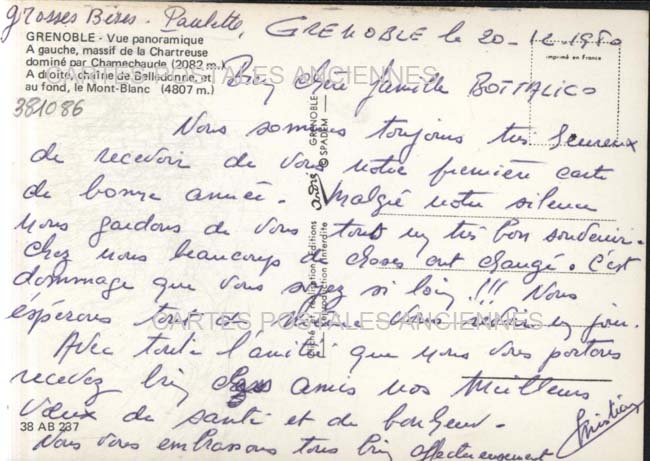 Grosses Bises. Paulette,
GRENOBLE le 20-12-1980
GRENOBLE - Vue panoramique
A gauche, massif de la Chartreuse
dominé par Chamechaude (2082 m.)
A droite, chaîne de Belledonne, et
au fond, le Mont-Blanc (4807 m.)
imprimé en France
CARTES POSTALES ANCIENNES
381086
Bien chère famille BOTTALICO
Nous sommes toujours très heureux
de recevoir de vous notre première carte
de bonne année. Malgré notre silence
nous gardons de vous tous un très bon souvenir.
Chez nous beaucoup de choses ont changé. C'est
dommage que vous soyez si loin !!! Nous
espérons tout de même vous un jour.
CARTES POSTALES ANCIENNES
Avec toute l'amitié que nous vous portons
recevez bien amis nos meilleurs
vœux de santé et de bonheur.
Nous vous embrassons tous bien affectueusement
Christian
38 AB 237
Cliché et réalisation Editions andré GRENOBLE
Reproduction interdite © SPADEM